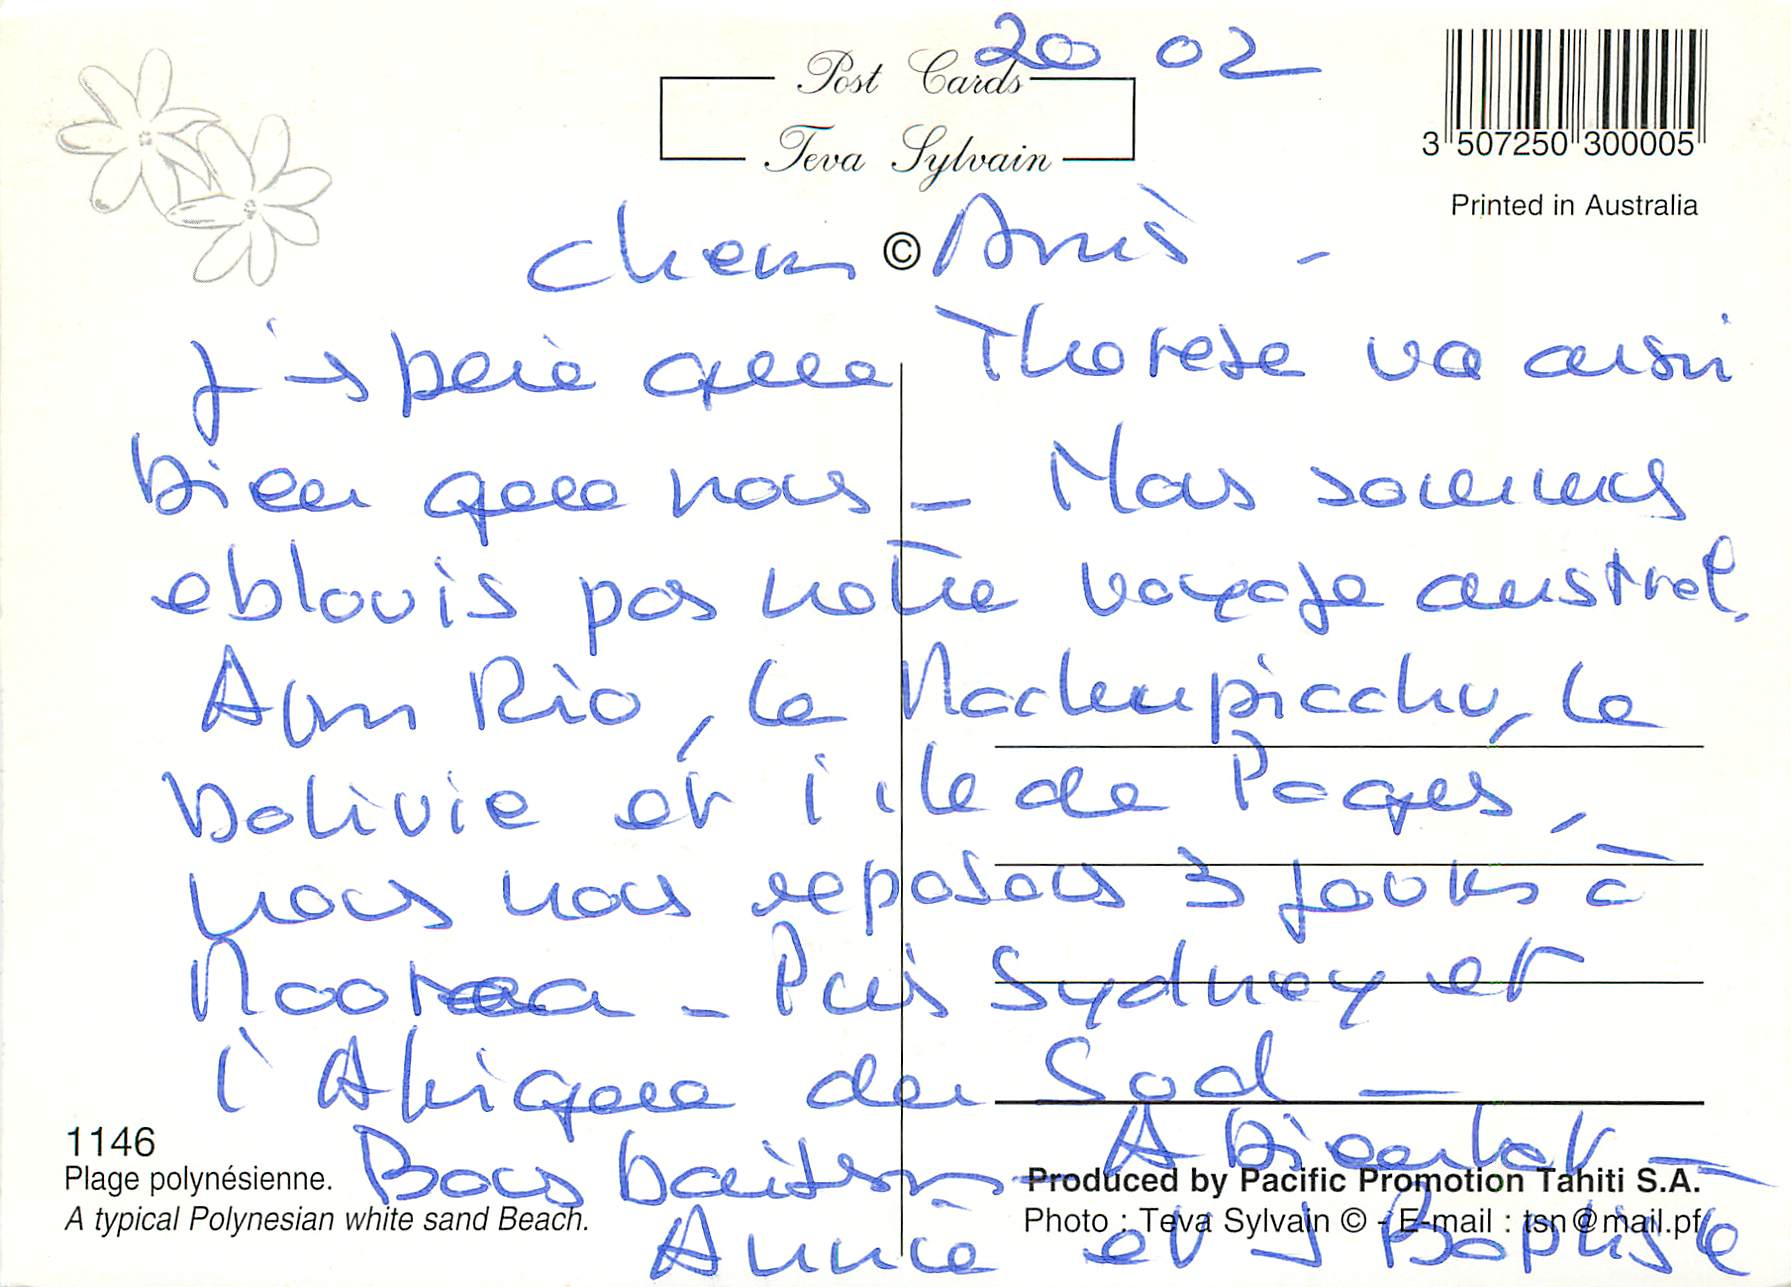 20 02
Post Cards
Teva Sylvain
©
3 507250 300005
Printed in Australia
Chers Amis -
J'espère que Thérèse va aussi
bien que nous - Nous sommes
eblouis par notre voyage austral.
Apres Rio, le Machupicchu, la
Bolivie et l'ile de Paques,
nous nous reposons 3 jours à
Moorea - Puis Sydney et
l'Afrique du Sud -
A Bientot -
Bons baisers -
Annie et J Baptiste
1146
Plage polynésienne.
A typical Polynesian white sand Beach.
Produced by Pacific Promotion Tahiti S.A.
Photo : Teva Sylvain © - E-mail : tsn@mail.pf